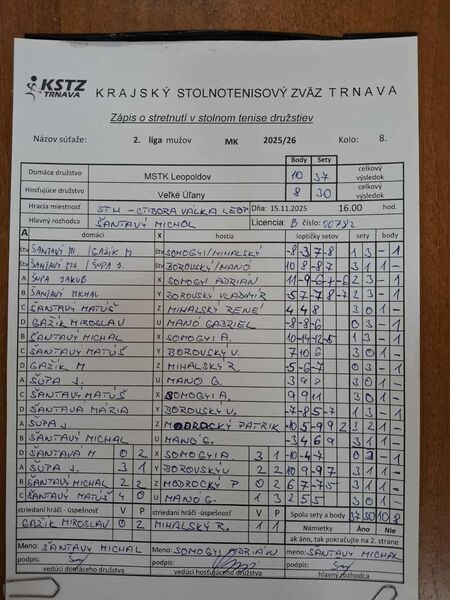 KSTZ
TRNAVA
KRAJSKÝ STOLNOTENISOVÝ ZVÄZ TRNAVA
Zápis o stretnutí v stolnom tenise družstiev
Názov súťaže: 2. liga mužov MK 2025/26 Kolo: 8.
Body Sety
Domáce družstvo MSTK Leopoldov 10 37 celkový výsledok
Hosťujúce družstvo Veľké Úľany 8 30 celkový výsledok
Hracia miestnosť STH - CTIBORA VALKA LEOP Dňa: 15.11.2025 16.00 hod.
Hlavný rozhodca ŠANTAVÝ MICHAL Licencia: B číslo: 00782
A domáci X hostia loptičky setov sety body
štv ŠANTAVÝ M. / GAŽÍK M štv SOMOGYI/MIHALSKÝ -8-37-8 1 3 - 1
štv ŠANTAVÝ MA. / ŠUPA J. štv BOROVSKÝ/MANO 10 8 -8 7 3 1 1 -
A ŠUPA JAKUB X SOMOGYI ADRIAN 2 3 - 1
B ŠANTAVÝ MICHAL Y BOROVSKÝ VLADIMÍR 2 3 - 1
C ŠANTAVÝ MATÚŠ Z MIHALSKÝ RENÉ 4 4 8 3 0 1 -
D GAŽÍK MIROSLAV U MANO GABRIEL -8-8-6 0 3 - 1
B ŠANTAVÝ MICHAL X SOMOGYI A. 1 3 - 1
C ŠANTAVÝ MATÚŠ Y BOROVSKÝ V. 7 10 6 3 0 1 -
D GAŽÍK M Z MIHALSKÝ R. -5-6-7 0 3 - 1
A ŠUPA J. U MANO G. 3 9 8 3 0 1 -
C ŠANTAVÝ MATÚŠ X SOMOGYI A. 9 9 11 3 0 1 -
D ŠANTAVÁ MÁRIA Y BOROVSKÝ V. -7-8 5-7 1 3 - 1
A ŠUPA J. Z MODROCKÝ PATRIK -10 5 -9 9 2 3 2 1 -
B ŠANTAVÝ MICHAL U MANO G. -3 4 6 9 3 1 1 -
D ŠANTAVA M 0 2 X SOMOGYI A 3 1 -10-4-7 0 3 - 1
A ŠUPA J. 3 1 Y BOROVSKÝ V 2 2 10 9 -9 7 3 1 1 -
B ŠANTAVÝ MICHAL 2 2 Z MODROCKÝ P 0 2 6 7 -7 5 3 1 1 -
C ŠANTAVÝ MATÚŠ 4 0 U MANO G. 1 3 2 5 5 3 0 1 -
striedaní hráči - úspešnosť V P striedaní hráči - úspešnosť V P Spolu sety a body 37 30 10 8
GAŽÍK MIROSLAV 0 2 MIHALSKÝ R. 1 1 Námietky Áno Nie
ak áno, tak pokračujte na 2. strane
Meno: ŠANTAVÝ MICHAL Meno: SOMOGYI ADRIÁN meno: ŠANTAVÝ MICHAL
podpis: podpis: podpis:
vedúci domáceho družstva vedúci hosťujúceho družstva hlavný rozhodca